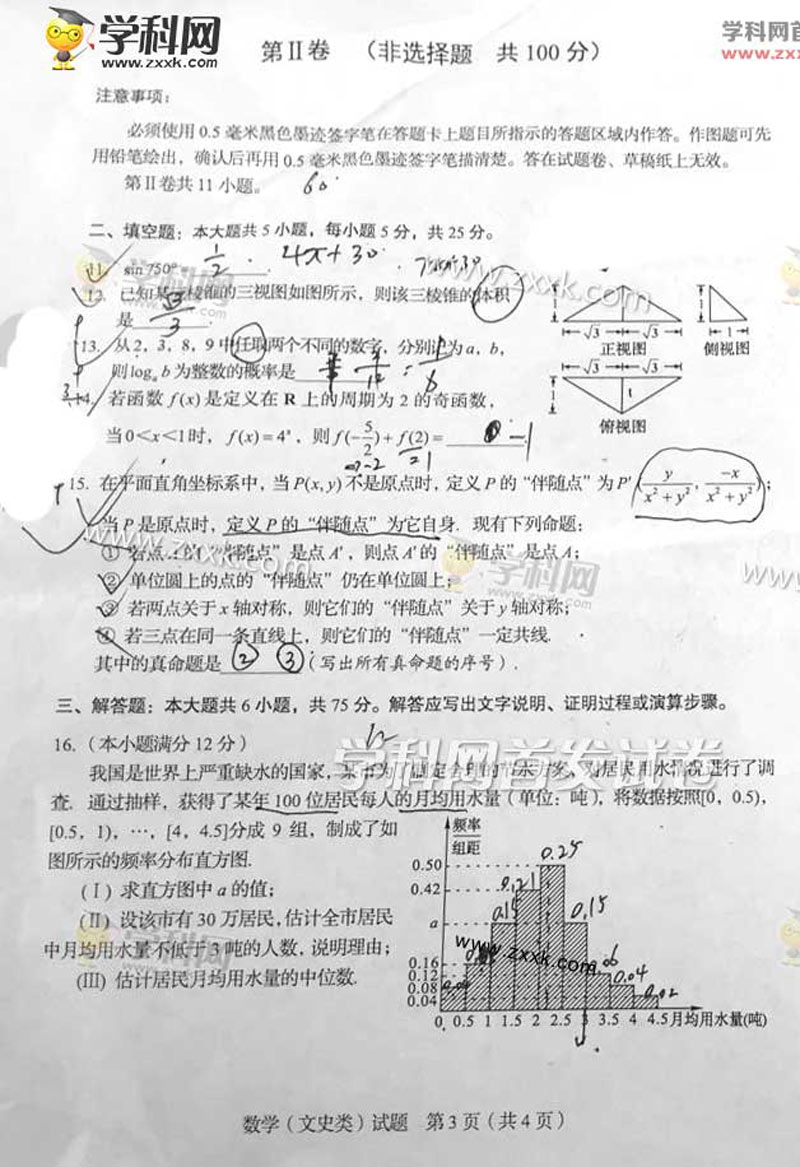 学科网
www.zxxk.com
学科网首
www.zxxk
第Ⅱ卷 （非选择题 共100分）
注意事项：
必须使用0.5毫米黑色墨迹签字笔在答题卡上题目所指示的答题区域内作答。作图题可先
用铅笔绘出，确认后再用0.5毫米黑色墨迹签字笔描清楚。答在试题卷、草稿纸上无效。
第Ⅱ卷共11小题。
二、填空题：本大题共5小题，每小题5分，共25分。
11. sin 750° 1/2
12. 已知某三棱锥的三视图如图所示，则该三棱锥的体积
是 √3/3 .
13. 从2，3，8，9中任取两个不同的数字，分别记为a，b，
则log_a b为整数的概率是 = 1/6
正视图 侧视图
俯视图
√3 √3 1
√3 √3
1
14. 若函数f(x)是定义在R上的周期为2的奇函数，
当0<x<1时，f(x)=4^x，则f(-5/2)+f(2)=
15. 在平面直角坐标系中，当P(x,y)不是原点时，定义P的“伴随点”为P′(y/(x²+y²), -x/(x²+y²))；
当P是原点时，定义P的“伴随点”为它自身. 现有下列命题：
① 若点A的“伴随点”是点A′，则点A′的“伴随点”是点A；
② 单位圆上的点的“伴随点”仍在单位圆上；
③ 若两点关于x轴对称，则它们的“伴随点”关于y轴对称；
④ 若三点在同一条直线上，则它们的“伴随点”一定共线.
其中的真命题是 ② ③ （写出所有真命题的序号）.
三、解答题：本大题共6小题，共75分。解答应写出文字说明、证明过程或演算步骤。
16.（本小题满分12分）
学科网首发试卷
我国是世界上严重缺水的国家，某市为了制定合理的节水方案，对居民用水情况进行了调
查. 通过抽样，获得了某年100位居民每人的月均用水量（单位：吨），将数据按照[0，0.5)，
[0.5，1)，…，[4，4.5]分成9组，制成了如
图所示的频率分布直方图.
（Ⅰ）求直方图中a的值；
（Ⅱ）设该市有30万居民，估计全市居民
中月均用水量不低于3吨的人数，说明理由；
（Ⅲ）估计居民月均用水量的中位数.
频率
组距
0.50
0.42
a
0.16
0.12
0.08
0.04
0.25
0.21
0.15
0.15
0.04
0.02
0 0.5 1 1.5 2 2.5 3 3.5 4 4.5 月均用水量(吨)
www.zxxk.com
数学（文史类）试题 第3页（共4页）